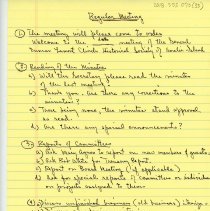 Regular Meeting
① The meeting will please come to order
Welcome to the meeting of the General
Historical Society of Rhode Island
② Reading of the Minutes
a) Will the Secretary please read the minutes
of the last meeting?
b) Thank you. Are there any corrections to the
minutes?
c) There being none, the minutes stand approved
as read.
d) Are there any special announcements?
③ Reports of Committees
a) Ask to report on new members & guests.
b) Ask for Treasury Report.
c) Report on Board Meeting (if applicable)
d) Ask for special reports of committees or individuals
on projects assigned to them.
unfinished business (old business)